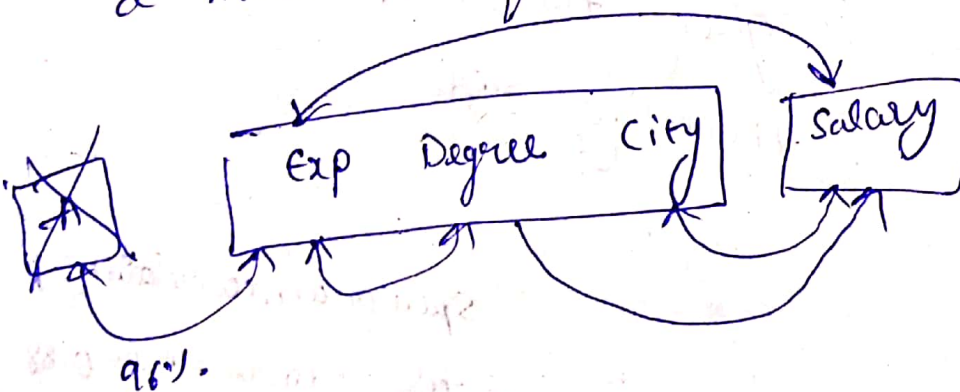 Exp Degree City Salary
96%.